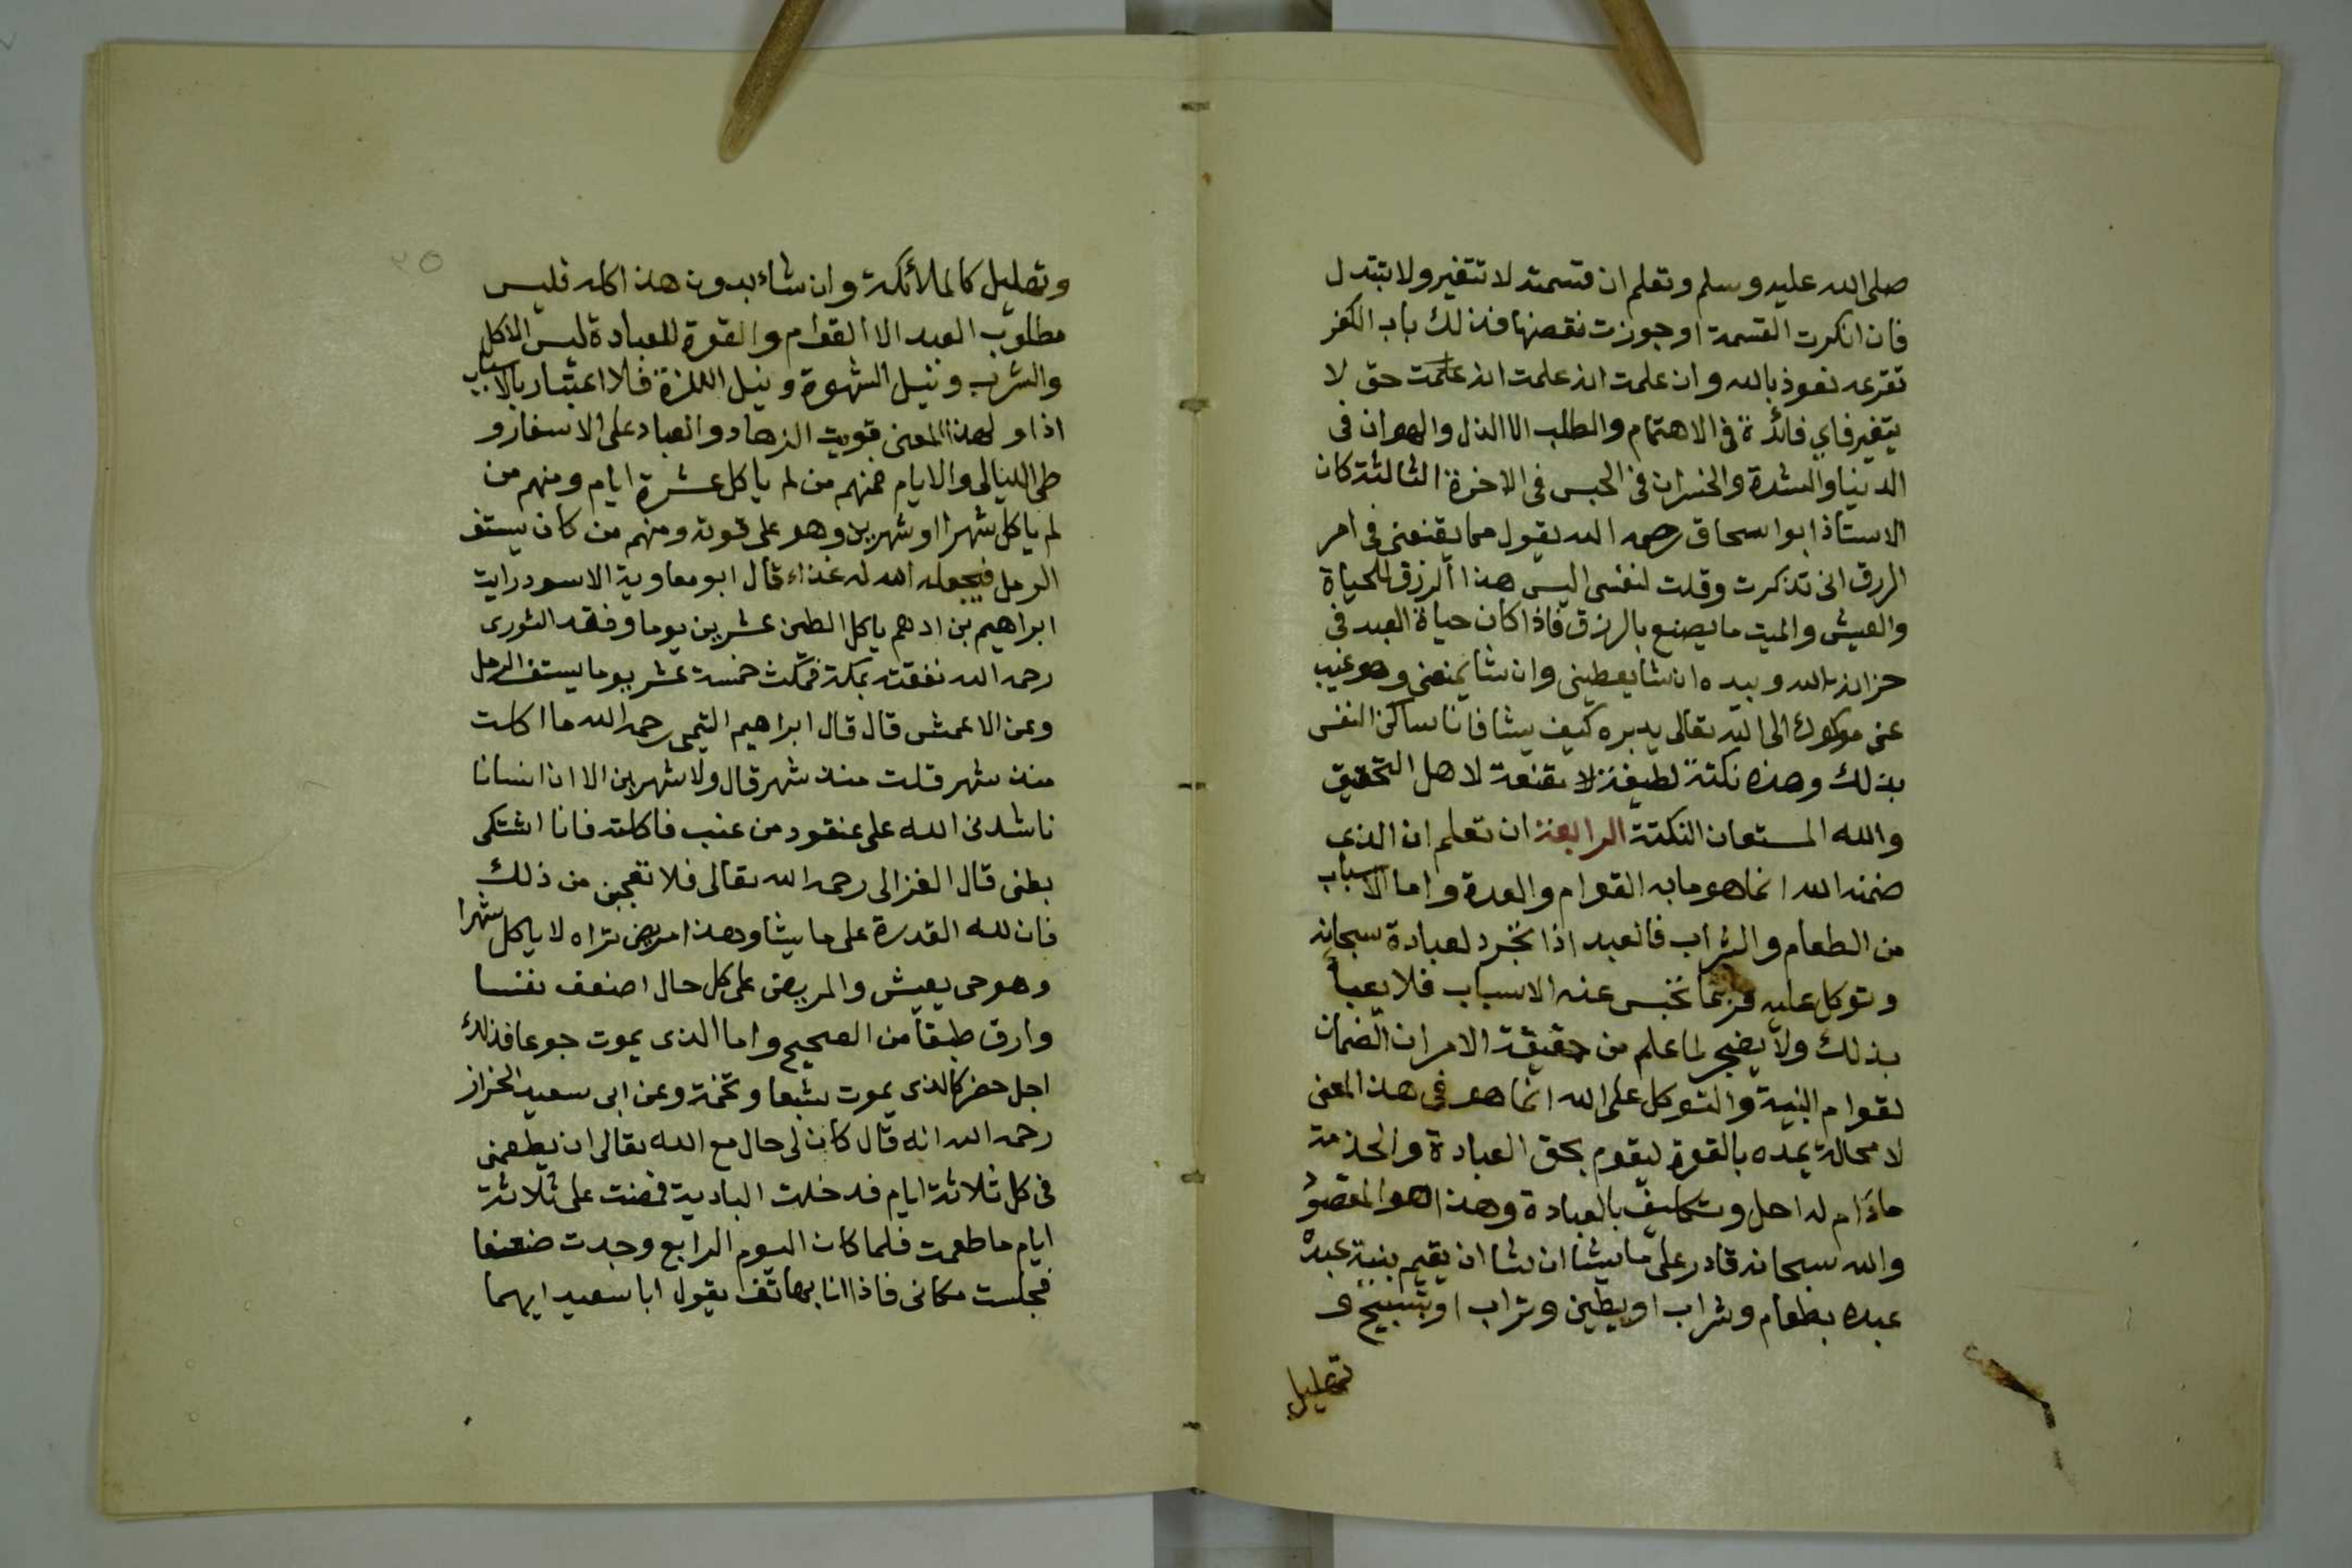 صلى الله عليه وسلم وتعلم ان قسمته لا تتغير ولا تتبدل
فان انكرت القسمة او جوزت نقضها فذلك باب الكفر
تقرعه نعوذ بالله وان علمت انه علمت انه حق لا
يتغير فاي فائدة في الاهتمام والطلب الا الذل والهوان في
الدنيا والشدة والخسران في الحبس في الاخرة الثالثة كان
الاستاذ ابو اسحاق رحمه الله يقول مما يقنعني في امر
الرزق اني تذكرت وقلت لنفسي اليس هذا الرزق للحياة
والعيش والميت ما يصنع بالرزق فاذا كان حياة العبد في
خزانة الله وبيده ان شا يعطيني وان شا يمنعني وهو غيب
عني موكول الى الله تعالى يدبره كيف يشا فانا ساكن النفس
بذلك وهذه نكتة لطيفة مقنعة لاهل التحقيق
والله المستعان النكتة الرابعة ان تعلم ان الذي
ضمنه الله انما هو ما به القوام والعدة واما الاسباب
من الطعام والشراب فالعبد اذا تجرد لعبادة سبحانه
وتوكل عليه فربما تحبس عنه الاسباب فلا يعبأ
بذلك ولا يضجر لما علم من حقيقة الامر ان الضمان
لقوام البنية والتوكل على الله انما هو في هذا المعنى
لا محالة يمده بالقوة ليقوم بحق العبادة والخدمة
مادام له اجل وتكليف بالعبادة وهذا هو المقصود
والله سبحانه قادر على ما يشا ان شا ان يقيم بنية عبده
عبده بطعام وشراب او بطين وتراب او بتسبيح و
تهليل
٢٥
وتهليل كالملائكة وان شاء بدون هذا كله فليس
مطلوب العبد الا القوام والقوة للعبادة ليس الاكل
والشرب ونيل الشهوة ونيل اللذة فلا اعتبار بالاسباب
اذا ولهذا المعنى قويت الزهاد والعباد على الاسفار و
طي الليالي والايام فمنهم من لم ياكل عشرة ايام ومنهم من
لم ياكل شهرا او شهرين وهو على قوته ومنهم من كان يستف
الرمل فيجعله الله له غذاء قال ابو معاوية الاسود رايت
ابراهيم بن ادهم ياكل الطين عشرين يوما وفقد الثوري
رحمه الله نفقته بمكة فمكث خمسة عشر يوما يستف الرمل
وعن الاعمش قال قال ابراهيم التيمي رحمه الله ما اكلت
منذ شهر قلت منذ شهر قال ولا شهرين الا ان انسانا
ناشدني الله على عنقود من عنب فاكلته فانا اشتكي
بطني قال الغزالي رحمه الله تعالى فلا تعجبن من ذلك
فان لله القدرة على ما يشا وهذا مريض تراه لا ياكل شهرا
وهو حي يعيش والمريض على كل حال اضعف نفسا
وارق طبقا من الصحيح واما الذي يموت جوعا فذلك
اجل حضر كالذي يموت شبعا وتخمة وعن ابي سعيد الخراز
رحمه الله انه قال كان لي حال مع الله تعالى ان يطعمني
في كل ثلاثة ايام فدخلت البادية فمضت علي ثلاثة
ايام ما طعمت فلما كان اليوم الرابع وجدت ضعفا
فجلست مكاني فاذا انا بهاتف يقول ابا سعيد ايهما